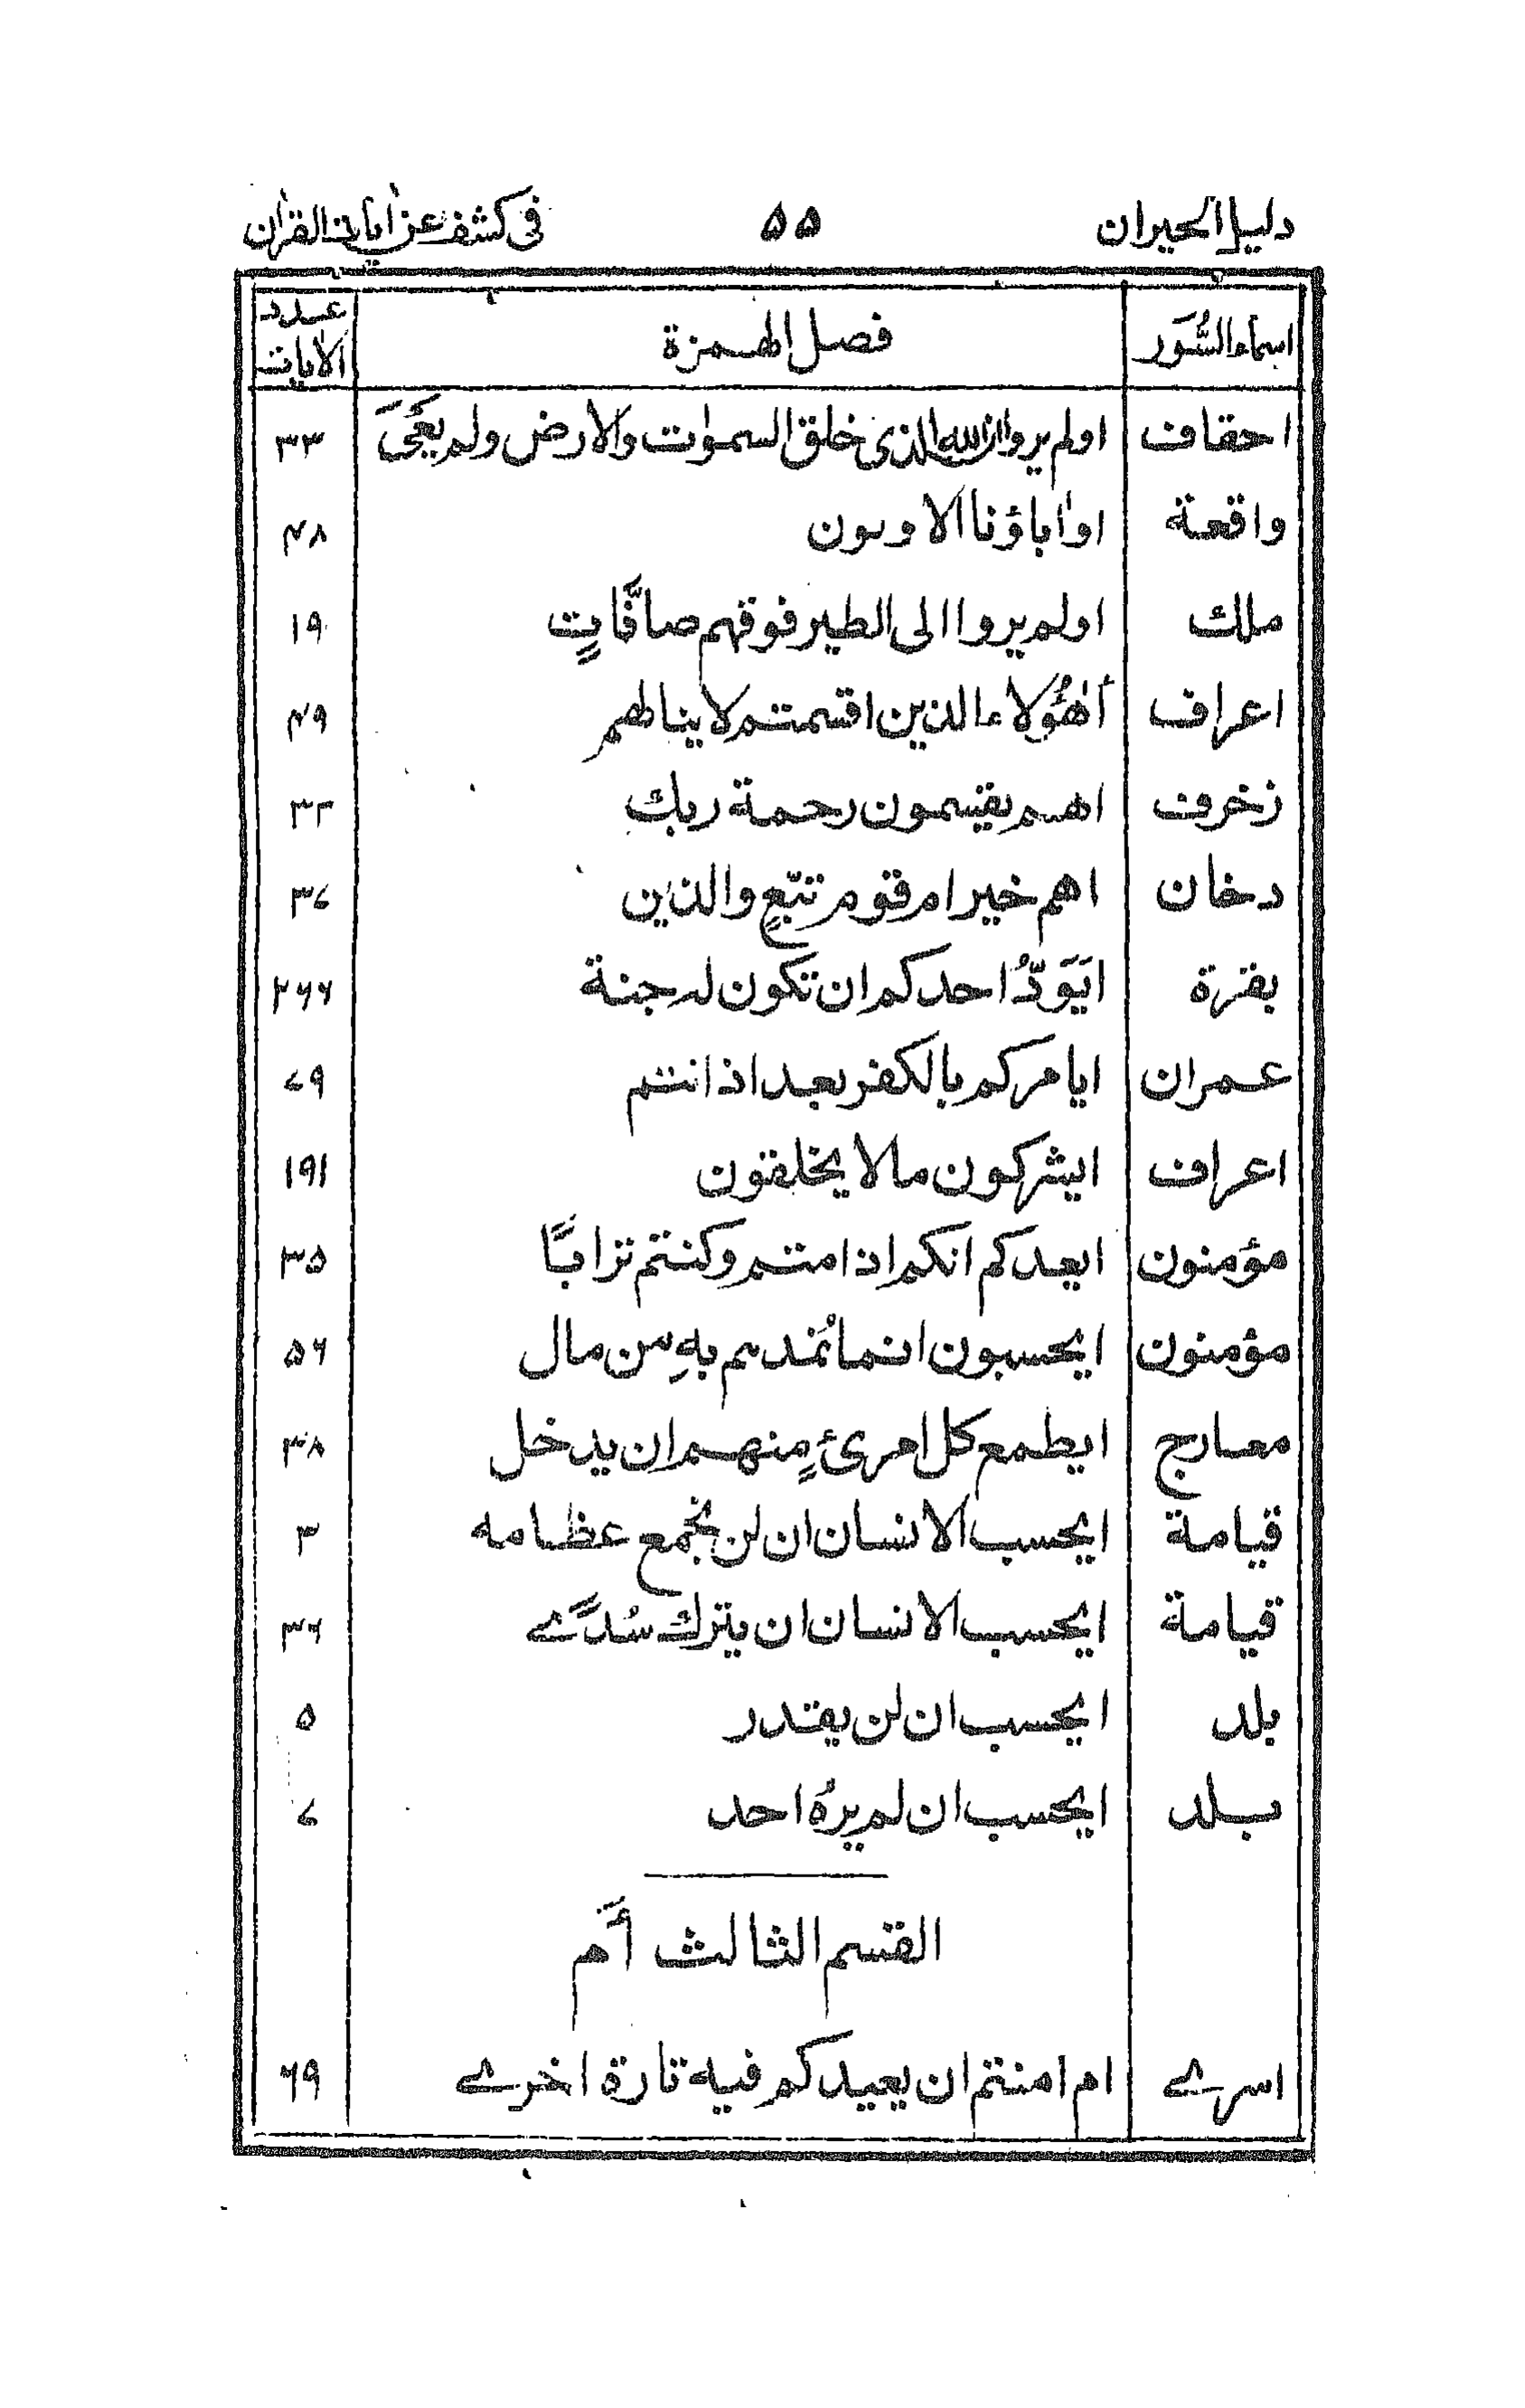 دليل الحيران ۵۵ فى كشف عن اٰيات القراٰن
اسماء السُّوَر فصل الهمزة عدد الاٰيات
احقاف اولم يروا ان الله الذى خلق السمٰوٰت والارض ولم يَعْىَ ۳۳
واقعة اواٰباؤنا الاولون ۴۸
ملك اولم يروا الى الطير فوقهم صافّاتٍ ۱۹
اعراف أهٰؤُلاء الذين اقسمتم لا ينالهم ۴۹
زخرف اهم يقسمون رحمة ربك ۳۲
دخان اهم خير ام قوم تبّعٍ والذين ۳۷
بقرة ايَوَدُّ احدكم ان تكون له جنة ۲۶۶
عمران ايامركم بالكفر بعد اذ انتم ۷۹
اعراف ايشركون مالا يخلقون ۱۹۱
مؤمنون ايعدكم انكم اذا متم وكنتم ترابًا ۳۵
مؤمنون ايحسبون انما نُمدهم بهٖ من مال ۵۶
معارج ايطمع كل امرئٍ منهم ان يدخل ۳۸
قيامة ايحسب الانسان ان لن نجمع عظامه ۳
قيامة ايحسب الانسان ان يترك سُدًے ۳۶
بلد ايحسب ان لن يقدر ۵
بلد ايحسب ان لم يرهٗ احد ۷
القسم الثالث أَم
اسرے ام امنتم ان يعيدكم فيه تارة اخرے ۶۹